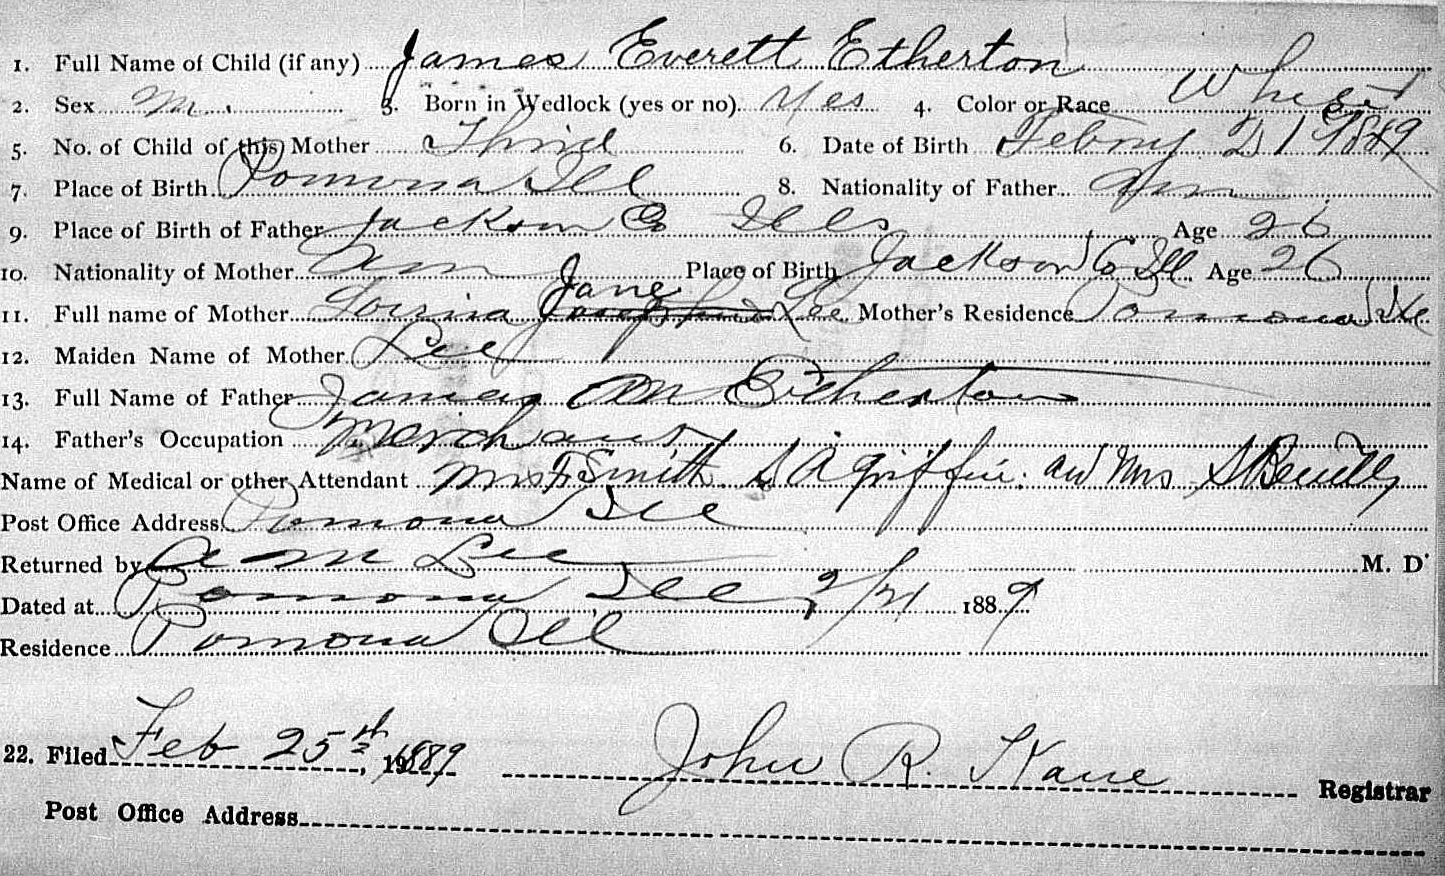 1. Full Name of Child (if any) James Everett Etherton
2. Sex M. 3. Born in Wedlock (yes or no) Yes 4. Color or Race White
5. No. of Child of this Mother Third 6. Date of Birth Febry 21 1889
7. Place of Birth Pomona Ill 8. Nationality of Father Am
9. Place of Birth of Father Jackson Co Ills Age 26
10. Nationality of Mother Am Place of Birth Jackson Co Ill Age 26
Jane
11. Full name of Mother Josephine Lee Mother's Residence Pomona Ill
12. Maiden Name of Mother Lee
13. Full Name of Father James M Etherton
14. Father's Occupation Merchant
Name of Medical or other Attendant Mrs F Smith S A Griffin. and Mrs
Post Office Address Pomona Ill
Returned by M Lee M. D.
Dated at Pomona Ill 2/21 1889
Residence Pomona Ill
22. Filed Feb 25th, 1889 John R. Kane Registrar
Post Office Address